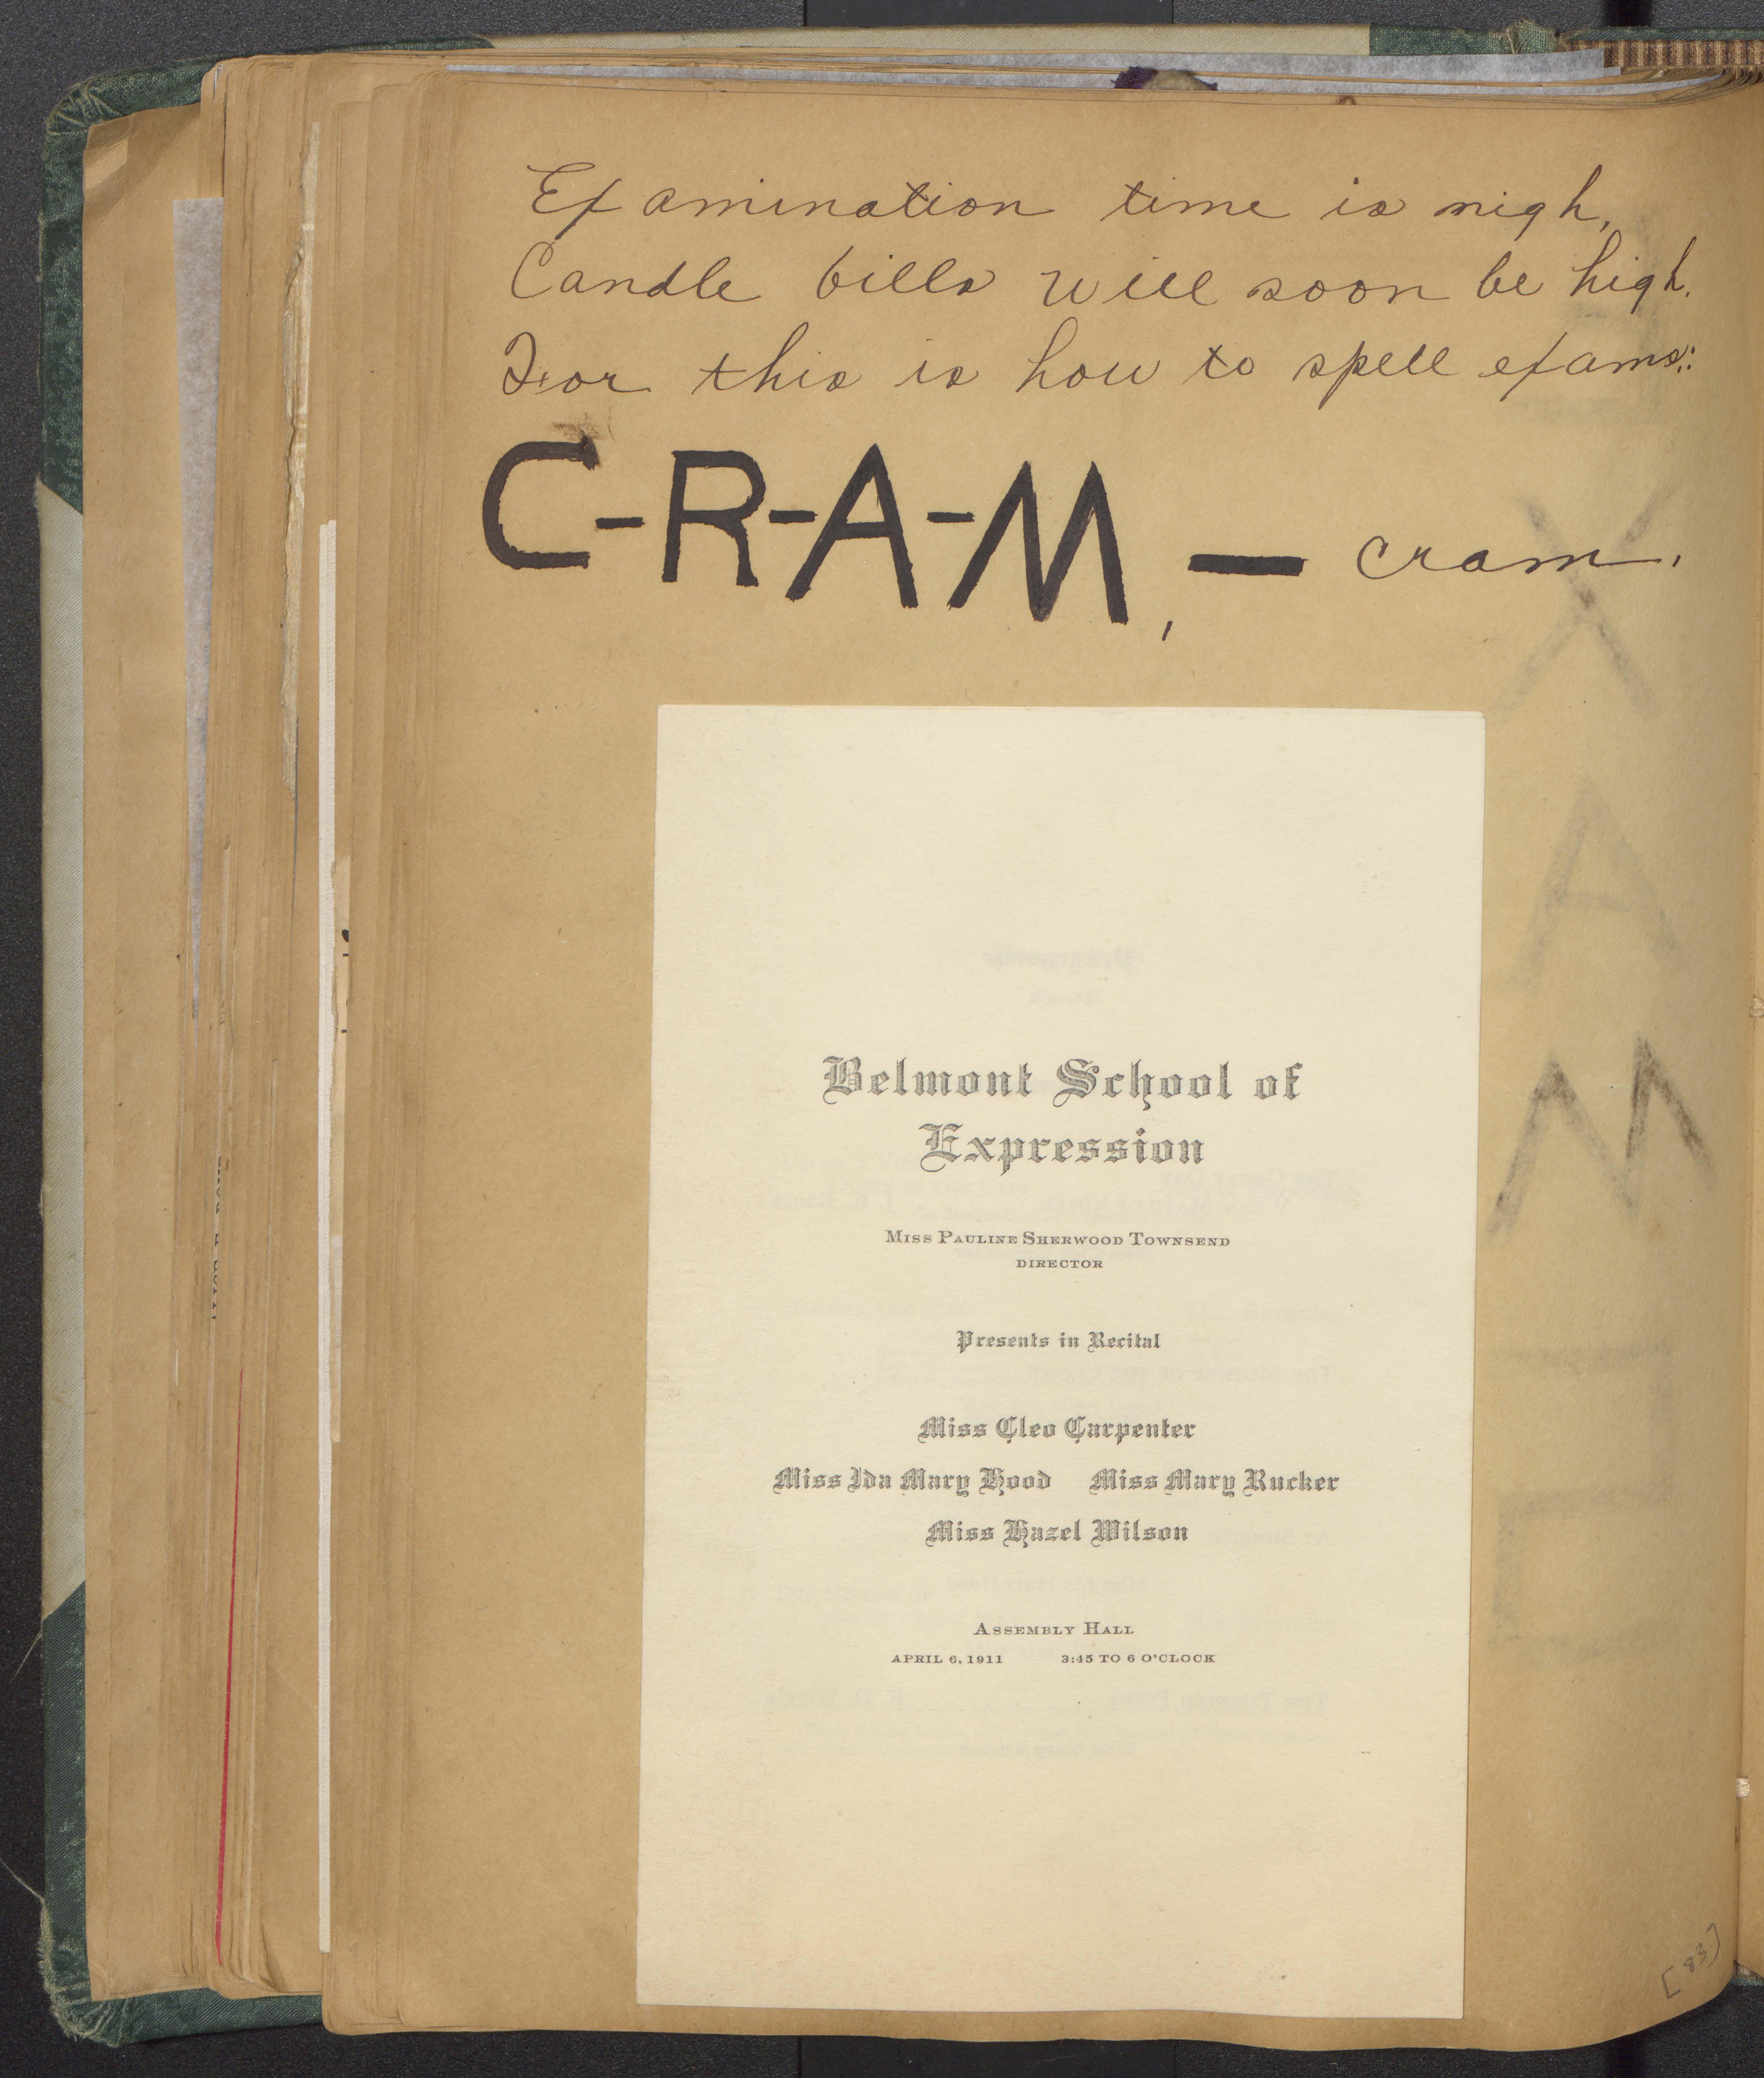 Examination time is nigh,
Candle bills will soon be high.
For this is how to spell exams:
C-R-A-M, — cram.
Belmont School of
Expression
Miss Pauline Sherwood Townsend
DIRECTOR
Presents in Recital
Miss Cleo Carpenter
Miss Ida Mary Hood Miss Mary Rucker
Miss Hazel Wilson
Assembly Hall
APRIL 6, 1911 3:45 TO 6 O'CLOCK
[83]